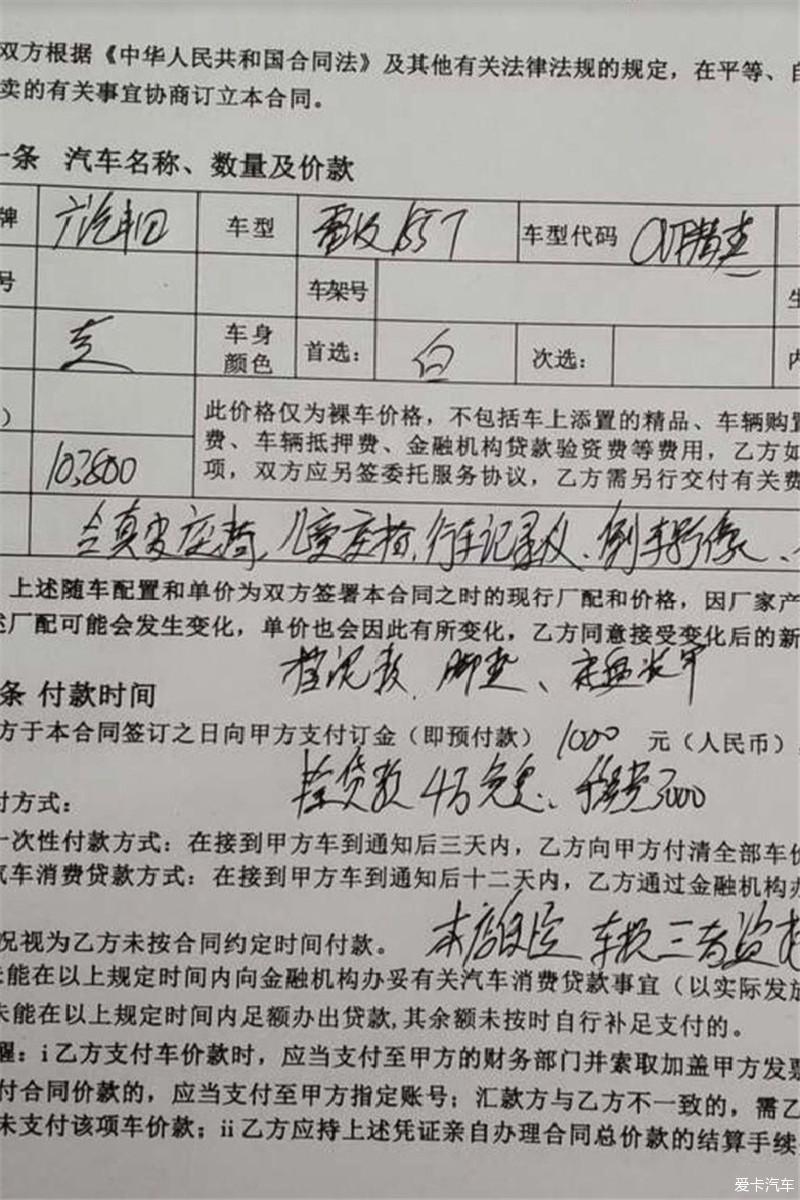 双方根据《中华人民共和国合同法》及其他有关法律法规的规定，在平等、自
卖的有关事宜协商订立本合同。
一条 汽车名称、数量及价款
牌 广汽丰田 车型 雷凌 185T 车型代码 CVT精英
号 车架号 生
车身颜色 首选： 白 次选： 内
） 此价格仅为裸车价格，不包括车上添置的精品、车辆购置
费、车辆抵押费、金融机构贷款验资费等费用，乙方如
103800 项，双方应另签委托服务协议，乙方需另行交付有关费
全真皮座椅、儿童座椅、行车记录仪、倒车影像、
上述随车配置和单价为双方签署本合同之时的现行厂配和价格，因厂家产
述厂配可能会发生变化，单价也会因此有所变化，乙方同意接受变化后的新
挡泥板、脚垫、底盘装甲
条 付款时间
方于本合同签订之日向甲方支付订金（即预付款） 1000 元（人民币），
贷款4万免息、手续费3000
付方式：
一次性付款方式：在接到甲方车到通知后三天内，乙方向甲方付清全部车价
汽车消费贷款方式：在接到甲方车到通知后十二天内，乙方通过金融机构办
况视为乙方未按合同约定时间付款。 本店保险 车损 三者 盗抢
未能在以上规定时间内向金融机构办妥有关汽车消费贷款事宜（以实际发放
未能在以上规定时间内足额办出贷款,其余额未按时自行补足支付的。
醒：i乙方支付车价款时，应当支付至甲方的财务部门并索取加盖甲方发票
付合同价款的，应当支付至甲方指定账号；汇款方与乙方不一致的，需乙
未支付该项车价款；ii乙方应持上述凭证亲自办理合同总价款的结算手续
爱卡汽车